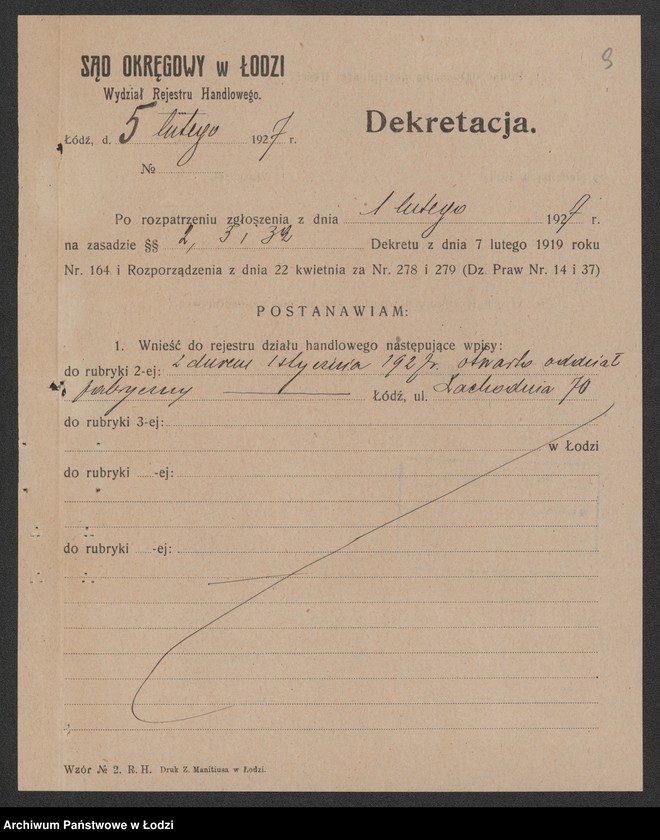 9
SĄD OKRĘGOWY w ŁODZI
Wydział Rejestru Handlowego.
Dekretacja.
Łódź, d. 5 lutego 1927 r.
№
Po rozpatrzeniu zgłoszenia z dnia 1 lutego 1927 r.
na zasadzie §§ 2, 3, 32 Dekretu z dnia 7 lutego 1919 roku
Nr. 164 i Rozporządzenia z dnia 22 kwietnia za Nr. 278 i 279 (Dz. Praw Nr. 14 i 37)
POSTANAWIAM:
1. Wnieść do rejestru działu handlowego następujące wpisy:
do rubryki 2-ej: z dniem 1 stycznia 1927 r. otwarto oddział
fabryczny Łódź, ul. Zachodnia 70
do rubryki 3-ej:
w Łodzi
do rubryki -ej:
do rubryki -ej:
Wzór № 2. R. H. Druk Z. Manitiusa w Łodzi.
Archiwum Państwowe w Łodzi